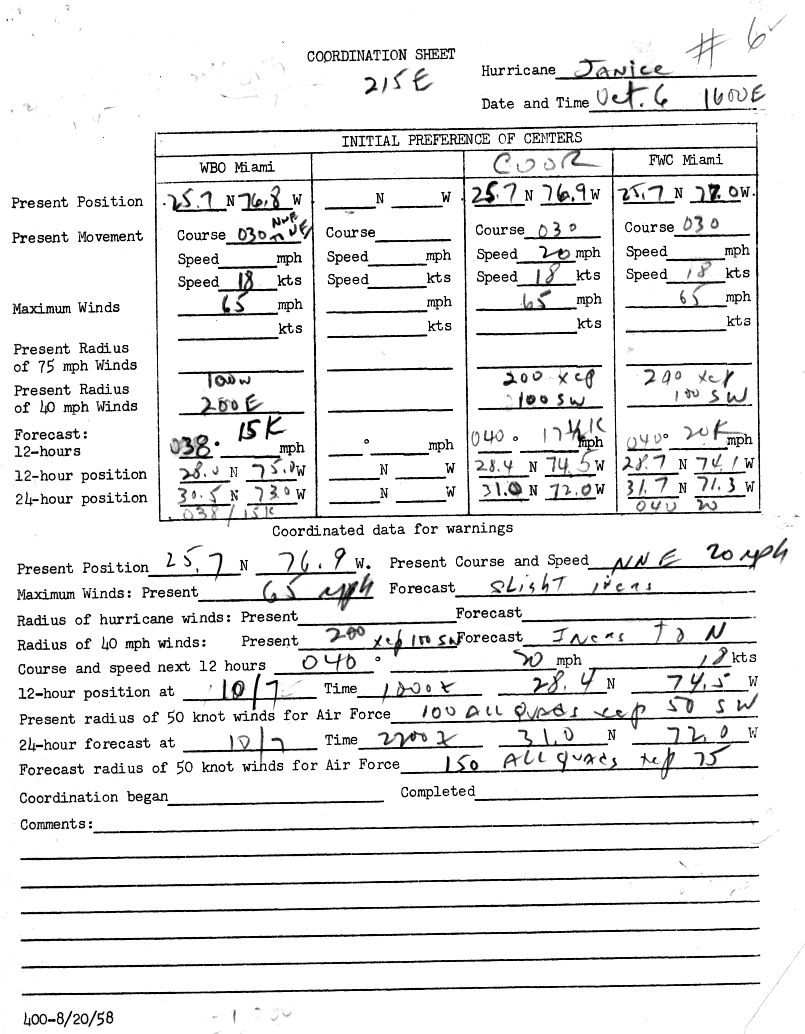 # 6
COORDINATION SHEET
215E
Hurricane Janice
Date and Time Oct. 6 1600E
INITIAL PREFERENCE OF CENTERS
WBO Miami COOR FWC Miami
Present Position 25.7 N 76.8 W N W 25.7 N 76.9 W 25.7 N 77.0 W.
NNE
Present Movement Course 030 NE Course Course 030 Course 030
Speed mph Speed mph Speed 20 mph Speed mph
Speed 18 kts Speed kts Speed 18 kts Speed 18 kts
Maximum Winds 65 mph mph 65 mph 65 mph
kts kts kts kts
Present Radius
of 75 mph Winds
Present Radius 100W 200 xcp 200 xcp
of 40 mph Winds 200E 100 SW 100 SW
Forecast: 15K
12-hours 038° mph ° mph 040° 17½K mph 040° 20K mph
12-hour position 28.0 N 75.0 W N W 28.4 N 74.5 W 28.7 N 74.1 W
24-hour position 30.5 N 73.0 W N W 31.0 N 72.0 W 31.7 N 71.3 W
038/15K 040 20
Coordinated data for warnings
Present Position 25.7 N 76.9 W. Present Course and Speed NNE 20 mph
Maximum Winds: Present 65 mph Forecast Slight incrs
Radius of hurricane winds: Present Forecast
Radius of 40 mph winds: Present 200 xcp 100 SW Forecast Incrs to N
Course and speed next 12 hours 040 ° 20 mph 18 kts
12-hour position at 10/7 Time 1000Z 28.4 N 74.5 W
Present radius of 50 knot winds for Air Force 100 all quads xcp 50 SW
24-hour forecast at 10/7 Time 2200Z 31.0 N 72.0 W
Forecast radius of 50 knot winds for Air Force 150 all quads xcp 75
Coordination began Completed
Comments:
400-8/20/58